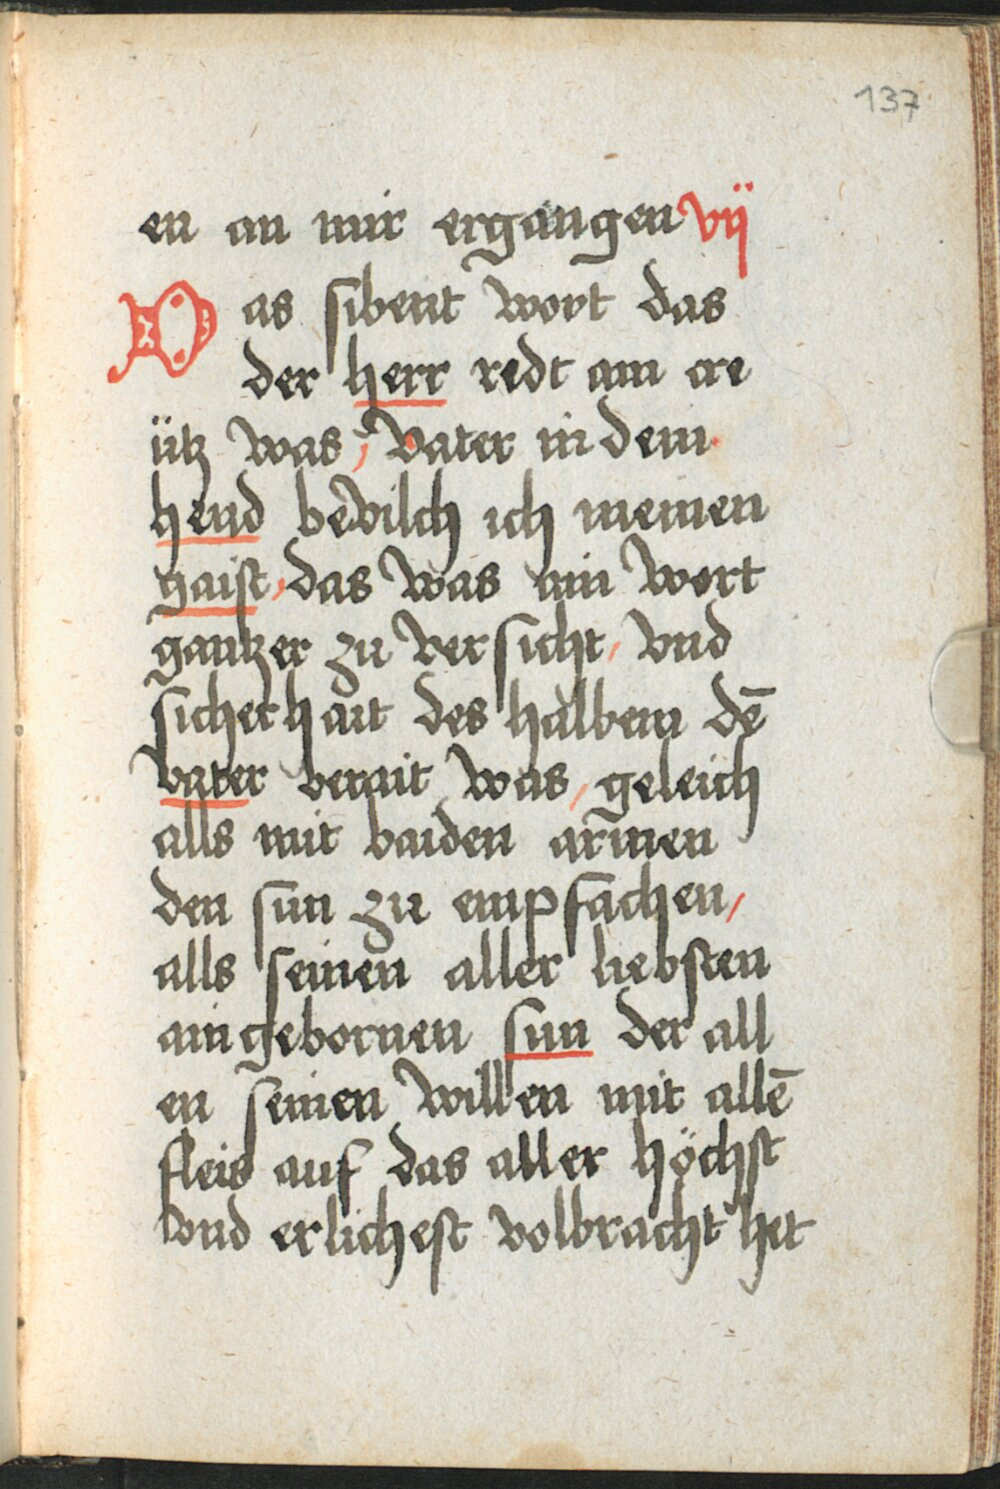 137
en an mir ergangen vij
Das sibent wort das
der herr redt am cre
ütz was / vater in dein
hend bevilch ich meinen
gaist / das was ain wort
gantzer zu versicht / vnd
sicherhait des halben dē
vater berait was / geleich
alls mit baiden armen
den sun zu empfachen /
alls seinen aller liebsten
aingebornen sun der all
en seinen willen mit allē
fleis auf das aller höchst
vnd erlichest volbracht het